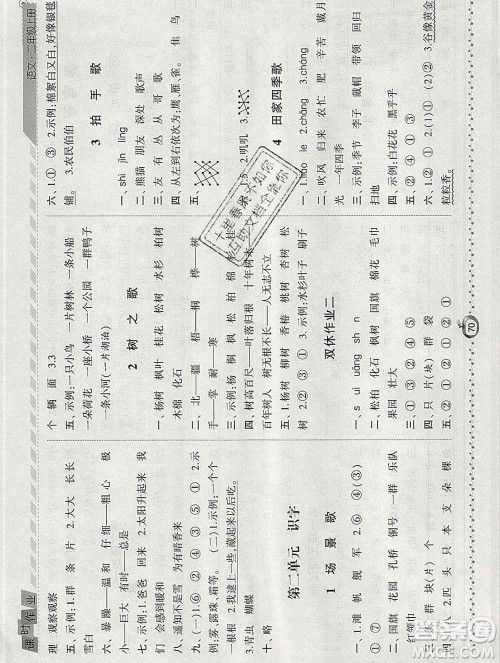 课时作业
语文·二年级上册
理 观察观察
五、示例:1.群 条 片 2.大大 长长
雪白
六、暴躁 温和 仔细—粗心 极
小—巨大 有时—总是
七、示例:1.爸爸 回来 2.太阳升起来 我
们会感到暖和
八、遥知不是雪 为有暗香来
九、(一)1.②⑥④③⑤① 2.示
例:雾、露珠、霜等。 3.示例:一个个
一根根 2.我逮上一些,藏起来以后吃。
3.昆虫 蝴蝶
十、略
第二单元 识字
1 场景歌
一、1.滩 帆 舰 军 2.⑥ ④(③)
⑦ ①
二、花园 孔桥 铜号 一群 乐队
红领巾
三、群 块(片) 个
四、1.只 本 支 朵 棵
2.匹 头
个 辆 面 3.3
五、示例:一只小鸟 一片树林 一条小船
一朵荷花 一座小桥 一个公园 一群鸭子
一条小河(一片湖泊)
2 树之歌
一、杨树 枫叶 桂花 松树 水杉 柏树
木棉 化石
二、北—疆 梧—桐 桦—树
手—掌 耐—寒
三、示例:杨 桐 枫 松 柏 棉 杉 桂
四、树高百尺—叶落归根 十年树木—
百年树人 树无根不长—人无志不立
五、1.杨树 柳树 香椿 桃树 杏树 松
树 2.②①③ 3.示例:水杉叶子 刷子
双休作业二
一、s ui uāng sh n
二、松柏 化石 枫树 国旗 棉花 毛巾
果园 壮大
三、①③②④⑤
四、只 片(块) 群 袋
五、②①②②①
六、1.① ③ 2.示例:棉絮白又白,好像银毯
铺。 3.农民伯伯
3 拍手歌
一、shì jǐn líng
二、熊猫 朋友 深处 歌声
三、友 有 丛 从 哥 歌
四、从左到右依次为:鹰、雁、雀。 隹 鸟
五、
3.
4 田家四季歌
2.chǎng 3.cháng
二、吹风 归来 农忙 肥 辛苦 戴月
光 一年四季
三、示例:季节 李子 戴帽 带领 回归
扫地
四、示例:白花花 黑乎乎
五、④③①
六、1.② 2.(1)② (2)② 3.谷像黄金
粒粒香。
70